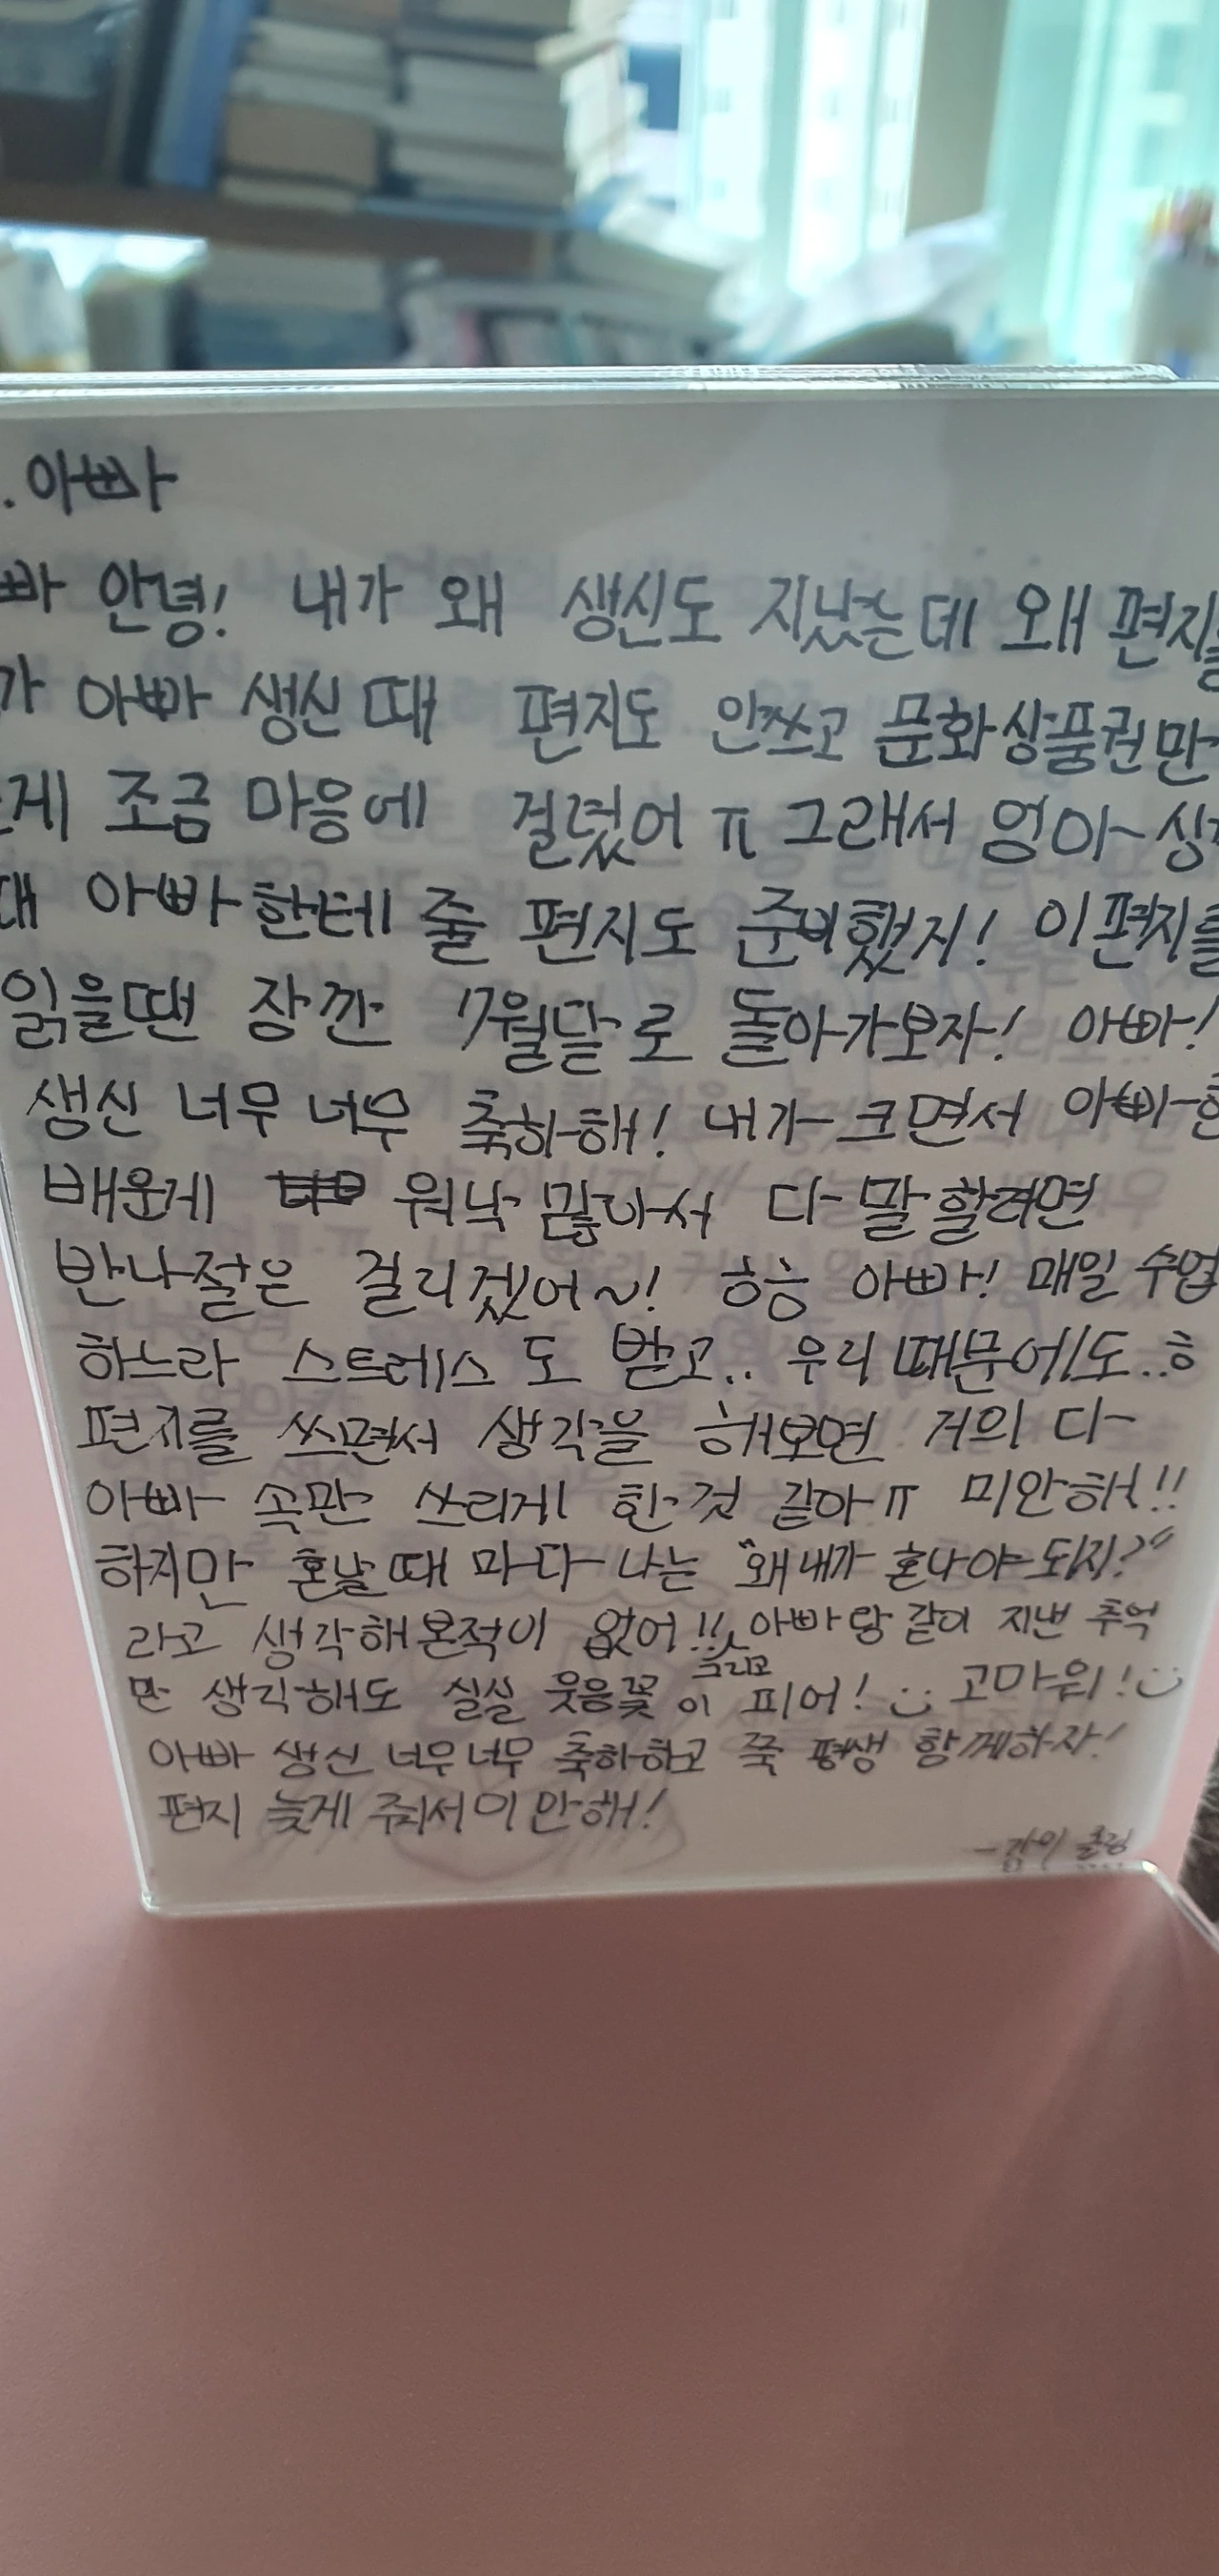 . 아빠
빠 안녕! 내가 왜 생신도 지났는데 왜 편지를
가 아빠 생신 때 편지도 안쓰고 문화상품권만
게 조금 마음에 걸렸어 ㅠ 그래서 엄마~ 생
때 아빠한테 줄 편지도 준비했지! 이 편지를
읽을땐 잠깐 7월달로 돌아가보자! 아빠!
생신 너무 너무 축하해! 내가 크면서 아빠한
배운게 워낙 많아서 다 말할려면
반나절은 걸리겠어~! 흐흐 아빠! 매일 수업
하느라 스트레스도 받고.. 우리 때문에도..ㅎ
편지를 쓰면서 생각을 해보면 거의 다
아빠 속만 쓰리게 한것 같아ㅠ 미안해!!
하지만 혼날때 마다 나는 "왜 내가 혼나야 되지?"
라고 생각해본적이 없어!! 그리고 아빠랑 같이 지낸 추억
만 생각해도 실실 웃음꽃이 피어! 고마워!
아빠 생신 너무너무 축하하고 쭉 평생 함께하자!
편지 늦게 줘서 미안해!